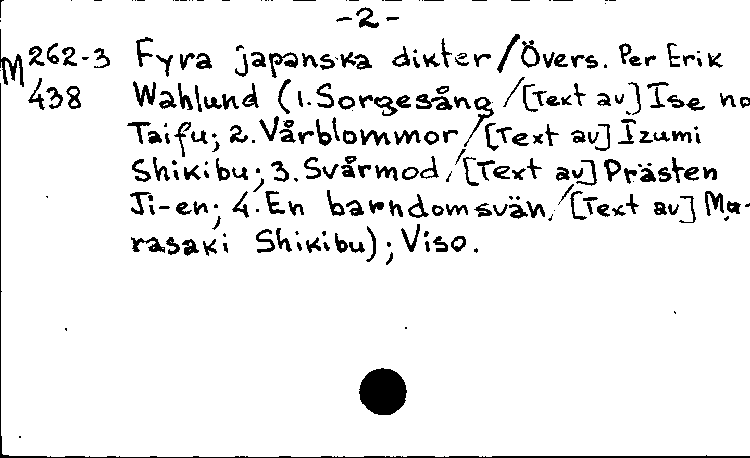 -2-
M 262-3 Fyra japanska dikter/Övers. Per Erik
438 Wahlund (1. Sorgesång/[Text av] Ise no
Taifu; 2. Vårblommor/[Text av] Izumi
Shikibu; 3. Svårmod/[Text av] Prästen
Ji-en; 4. En barndomsvän/[Text av] Mu-
rasaki Shikibu); Viso.